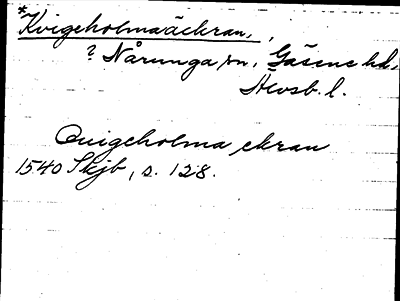 *Kvigeholmaäckran,,
? Nårunga sn, Gäsene hd,
Älvsb. l.
Quigeholma ekran
1540 Skjb, s. 128.